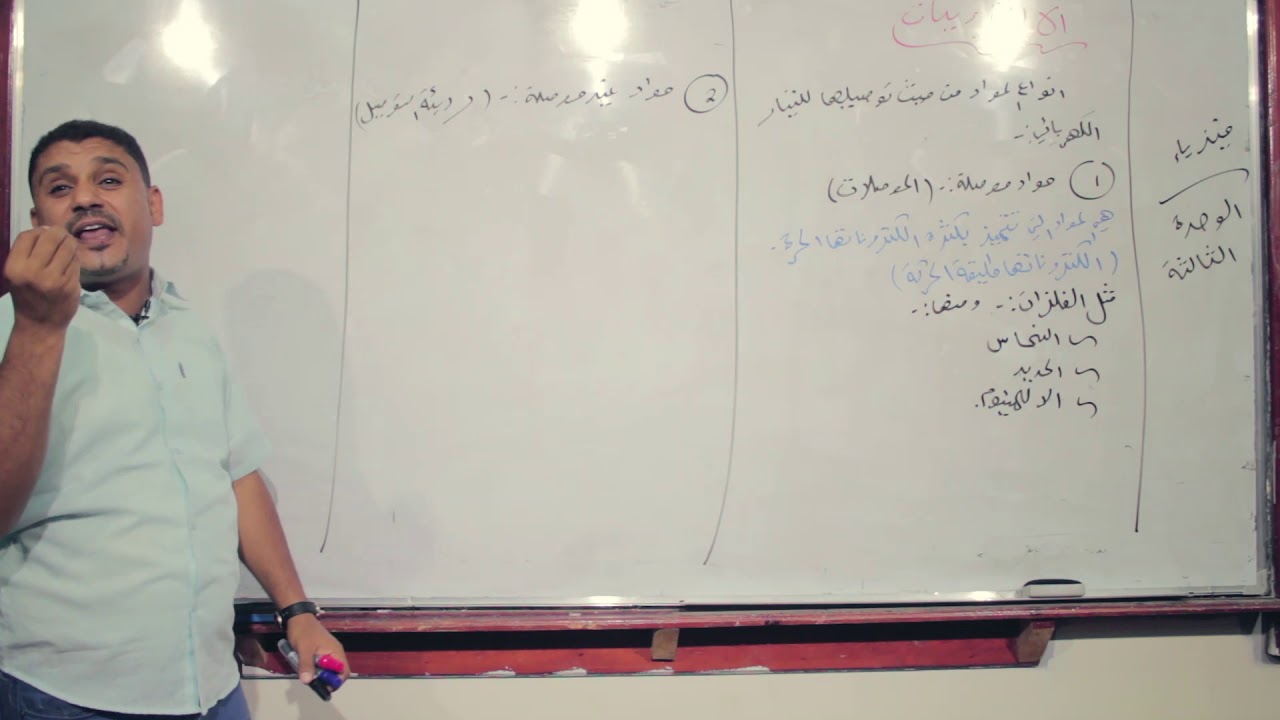 فيزياء
الوحدة
الثالثة
انواع المواد من حيث توصيلها للتيار
الكهربائي:-
١ مواد موصلة:- (الموصلات)
هي المواد التي تتميز بكثرة الكتروناتها الحرة.
(الكتروناتها طليقة الحركة)
مثل الفلزات:- ومنها:-
النحاس
الحديد
الالمنيوم.
2 مواد غير موصلة:- (رديئة التوصيل)